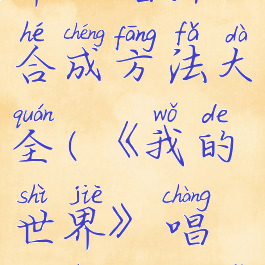 hé chéng fāng fǎ dà
合成方法大
quán wǒ de
全(《我的
shì jiè chàng
世界》唱